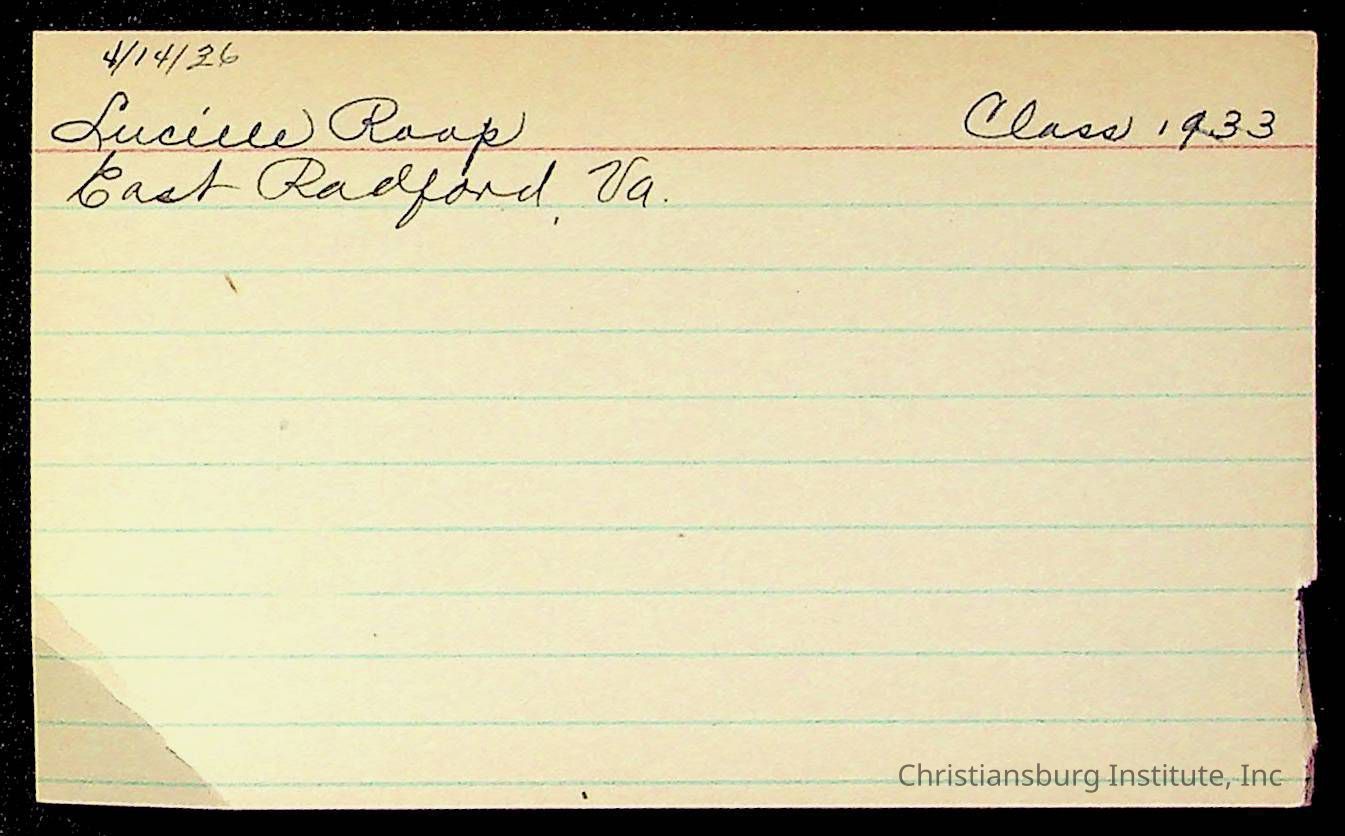 4/14/36
Lucille Roop Class 1933
East Radford, Va.
Christiansburg Institute, Inc